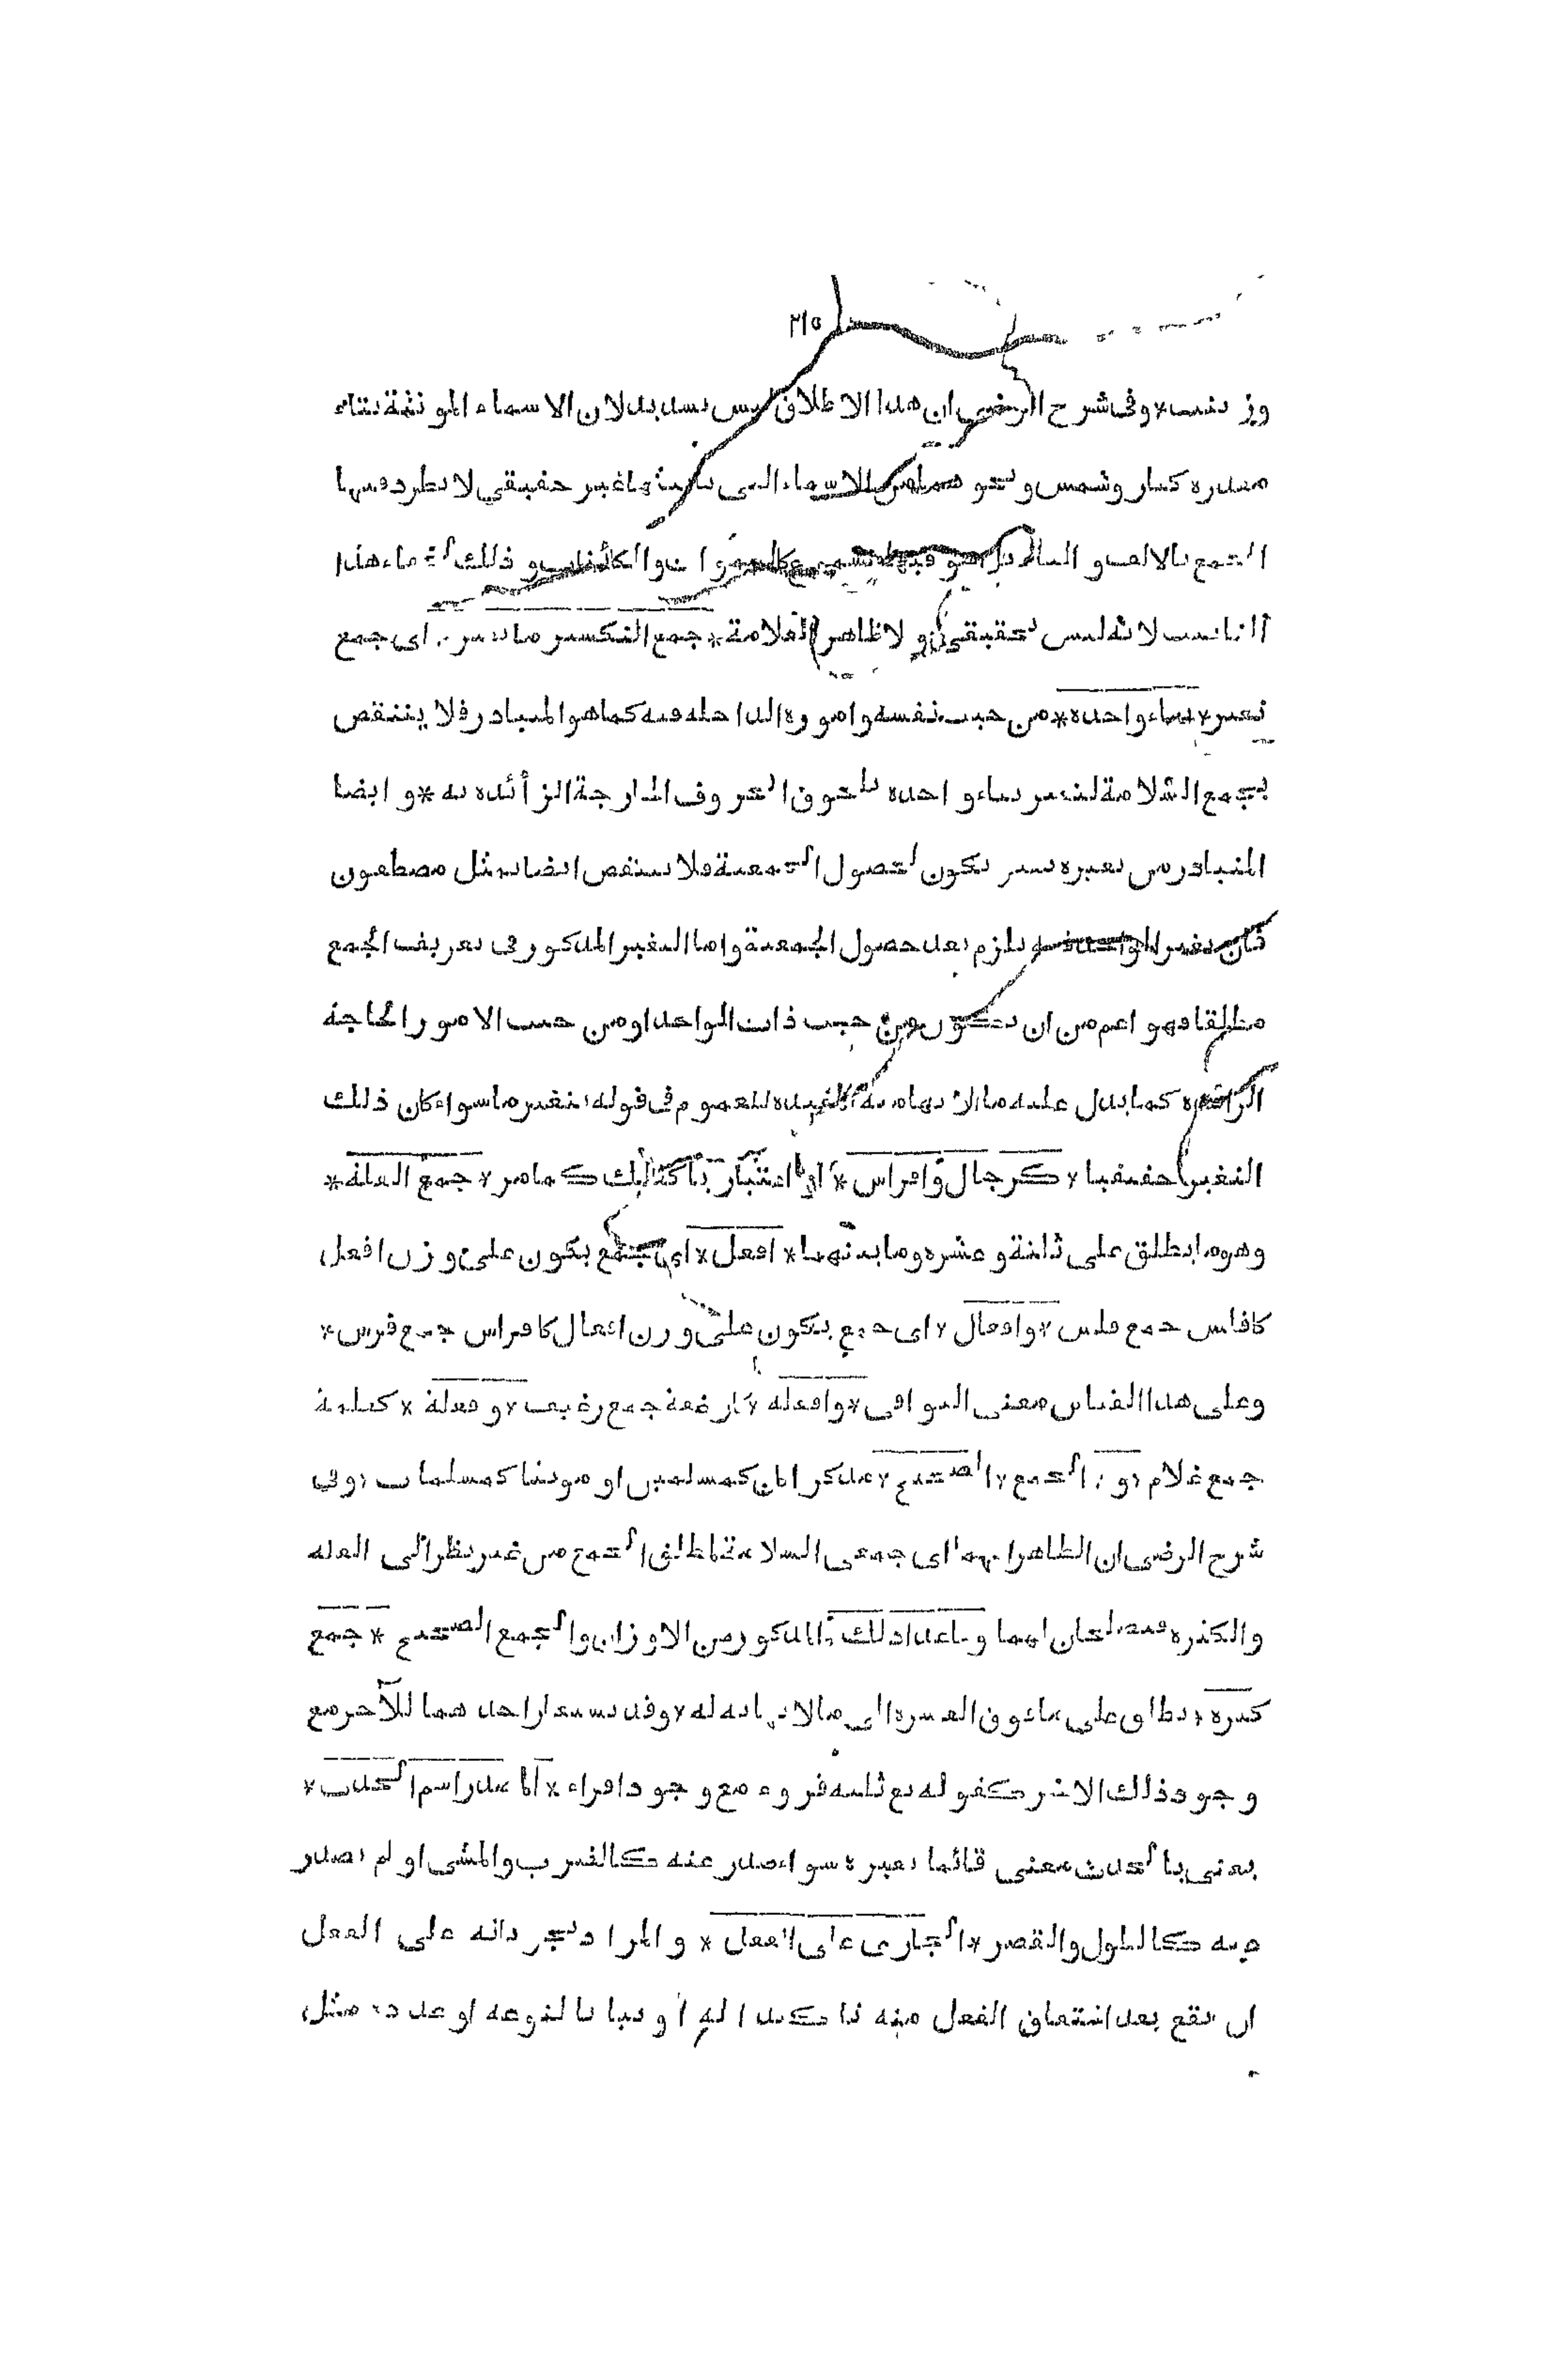 ٢١٥
وزينب * وفى شرح الرضى ان هذا الاطلاق ليس بسديد لان الاسماء المونثة بتاء
مقدرة كنار وشمس ونحو هما من الاسماء التى تانيثها غير حقيقي لا يطرد فيها
الجمع بالالف والتاء بل هو فيها مسموع كالسموات والكائنات وذلك لخفاء هذا
التانيث لانه ليس بحقيقى ولا ظاهر العلامة * جمع التكسير ما تغير * اى جمع
تغير * بناء واحده * من حيث نفسه واموره الداخلة فيه كما هو المتبادر فلا ينتقص
بجمع السلامة لتغير بناء واحده بلحوق الحروف الخارجة الزائدة به * وايضا
المتبادر من تغيره تغير يكون لحصول الجمعية فلا ينتقص ايضا بمثل مصطفون
فان تغير الواحد فيه يلزم بعد حصول الجمعية واما التغير المذكور فى تعريف الجمع
مطلقا فهو اعم من ان يكون من حيث ذات الواحد او من حيث الامور الخارجة
الزائدة كما يدل عليه ما الابهامية المفيدة للعموم فى قوله بتغير ما سواء كان ذلك
التغير حقيقيا * كرجال وافراس * او اعتباريا كفلك كما مر * جمع القلة *
وهو ما يطلق على ثلثة وعشرة وما بينهما * افعل * اى جمع يكون على وزن افعل
كافلس جمع فلس * وافعال * اى جمع يكون على وزن افعال كافراس جمع فرس *
وعلى هذا القياس معنى البواقى * وافعلة * كارغفة جمع رغيف * وفعلة * كغلمة
جمع غلام * و * الجمع * الصحيح * مذكرا كان كمسلمين او مونثا كمسلمات * وفى
شرح الرضى ان الظاهر انهما اى جمعى السلامة لمطلق الجمع من غير نظر الى القلة
والكثرة فيصلحان لهما وما عدا ذلك * المذكور من الاوزان والجمع الصحيح * جمع
كثرة * يطلق على ما فوق العشرة الى ما لا نهاية له * وقد يستعار احدهما للآخر مع
وجود ذلك الاخر كقوله تع ثلثة قروء مع وجود اقراء * المصدر اسم الحدث *
يعنى بالحدث معنى قائما بغيره سواء صدر عنه كالضرب والمشى او لم يصدر
عنه كالطول والقصر * الجارى على الفعل * والمراد بجريانه على الفعل
ان يقع بعد اشتقاق الفعل منه تاكيدا له او بيانا لنوعه او عدده مثل